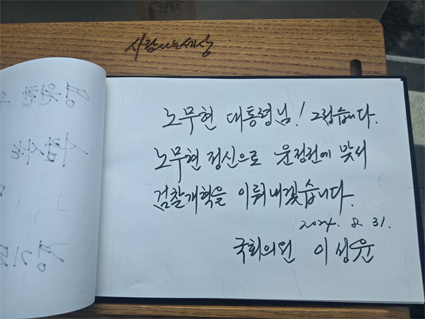 사람사는세상
노무현 대통령님! 그립습니다.
노무현 정신으로 윤정권에 맞서
검찰개혁을 이뤄내겠습니다.
2024. 8. 31.
국회의원 이성윤